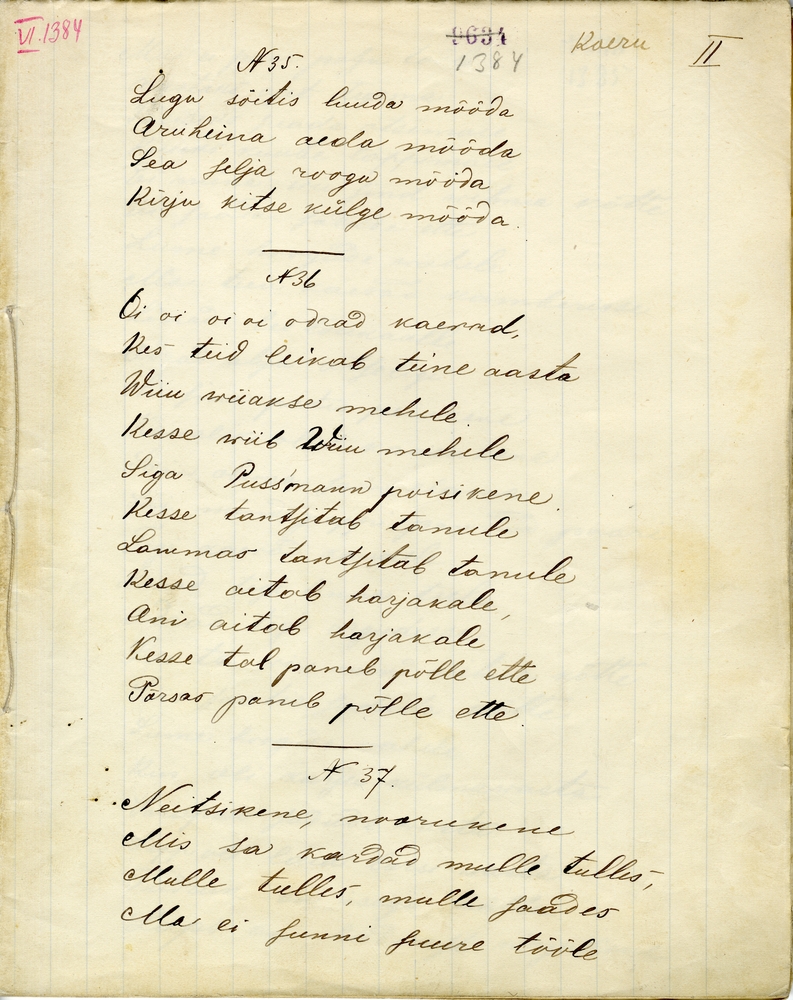 VI.1384
9634
1384
Koeru
II
N 35.
Lugu sõitis luuda mööda
Aruheina aeda mööda
Sea selja roogu mööda
Kirju kitse külge mööda.
N 36
Oi oi oi oi odrad kaerad,
Kes teid leikab teine aasta
Wiiu wiiakse mehele.
Kesse wiib Wiiu mehele
Siga Puss'mann poisikene.
Kesse tantsitab tanule
Lammas tantsitab tanule
Kesse aitab harjakale,
Ani aitab harjakale
Kesse tal paneb põlle ette
Põrsas paneb põlle ette.
N 37.
Neitsikene, noorukene
Mis sa kardad mulle tulles,
Mulle tulles, mulle saades
Ma ei sunni suure tööle